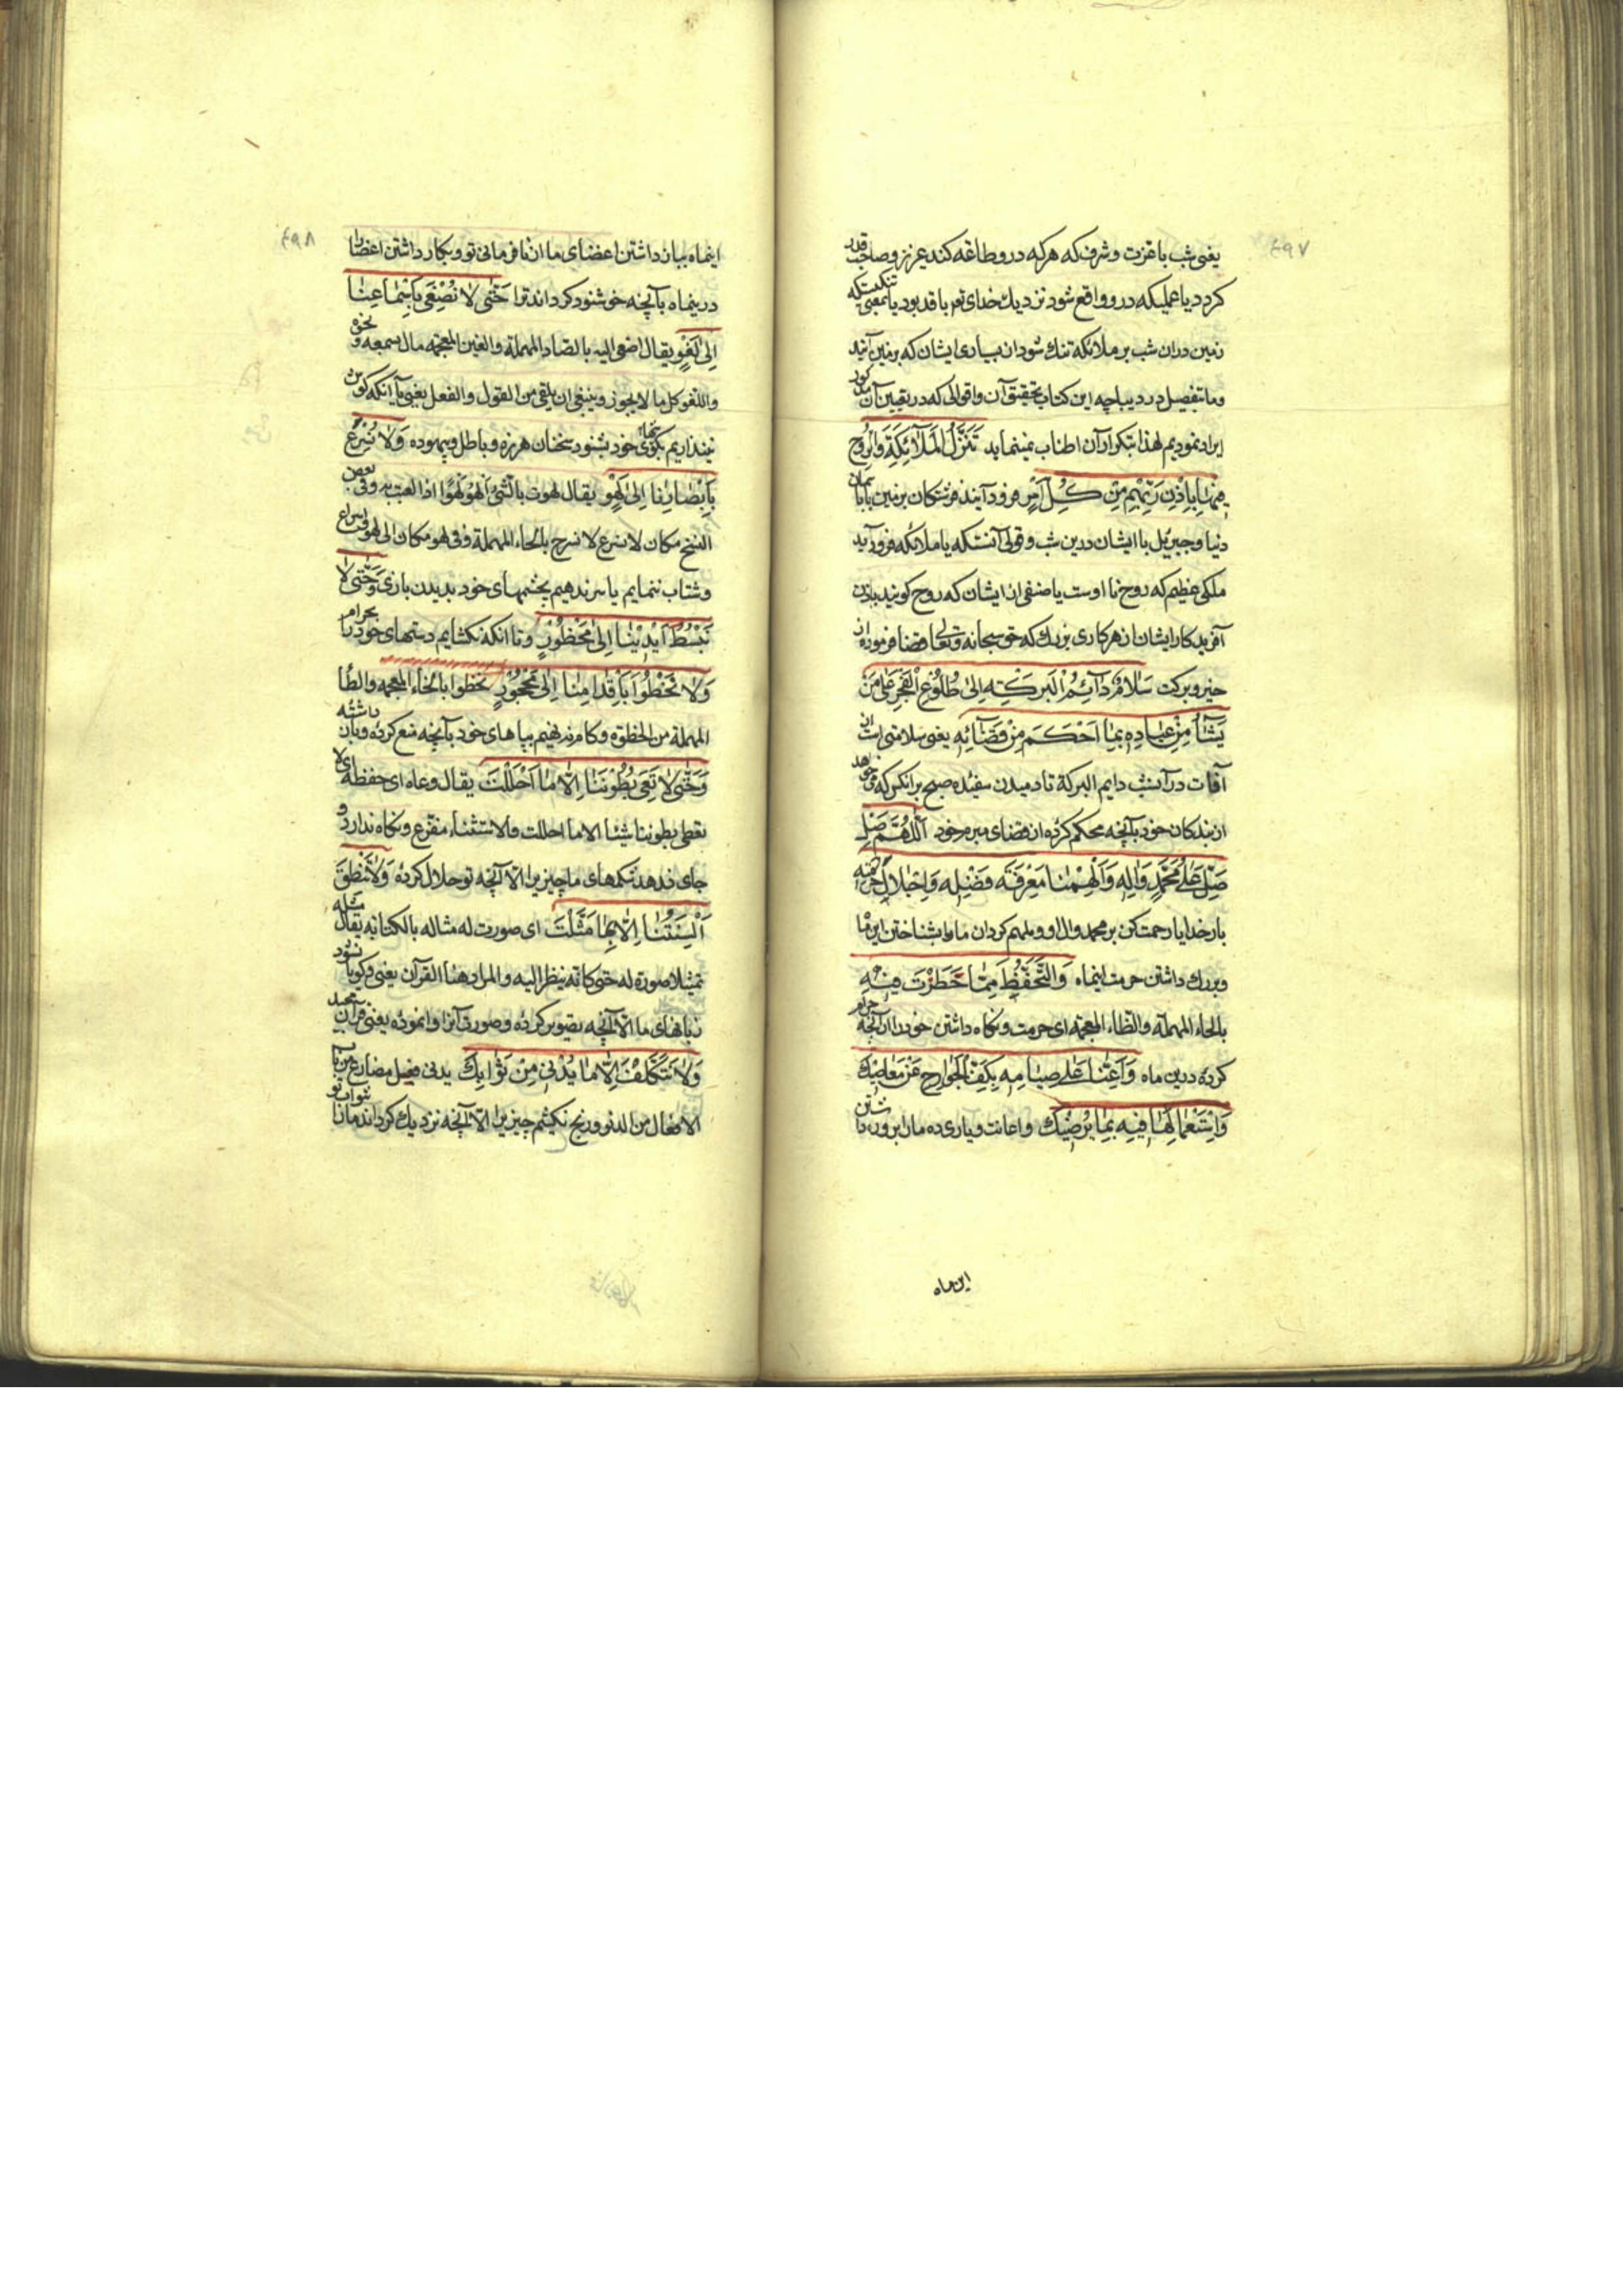 ۴۹۷
یعنی شب با عزت و شرف که هر که درو طاعة کند عزیز و صاحب قدر
کردد یا عملیکه درو واقع شود نزدیك خدای تعر با قدر بود یا بمعنی تنکیست که
زمین در ان شب بر ملائکه تنك شود از بسیاری ایشان که بزمین آیند
و ما تفصیل در دیباچه این کتاب تحقیق آن و اقوالی که در تعیین آن
ایراد نمودیم لهذا بتکرار آن اطناب نمینماید تَنَزَّلُ الْمَلَآئِکَةِ وَالرُّوحُ
فِیهَا بِاِذْنِ رَبِّهِمْ مِنْ کُلِّ اَمْرٍ فرود آیند فرشتکان بزمین یا باسمان
دنیا و جبرئیل با ایشان درین شب و قولی آنستکه با ملائکه فرود آید
ملکی عظیم که روح نام اوست یا صنفی از ایشان که روح کویند باذن
آفریدکار ایشان از هر کاری بزرك که حق سبحانه و تعالی قضا فرموده از
خیر و برکت سَلَامٌ دَآئِمُ الْبَرَکَةِ اِلٰی طُلُوعِ الْفَجْرِ عَلٰی مَنْ
یَشَآءُ مِنْ عِبَادِهِ بِمَا اَحْکَمَ مِنْ قَضَآئِهِ یعنی سلامتی است از
آفات در آنشب دایم البرکة تا دمیدن سفیده صبح بر انکس که می خواهد
از بندکان خود بآنچه محکم کرده از قضای مبرم خود اَللّٰهُمَّ صَلِّ
صَلِّ عَلٰی مُحَمَّدٍ وَاٰلِهِ وَاَلْهِمْنَا مَعْرِفَةَ فَضْلِهِ وَاِجْلَالَ حُرْمَتِهِ
بار خدایا رحمت کن بر محمد و ال او و ملهم کردان ما را بشناختن این ماه
و بزرك داشتن حرمت اینماه وَالتَّحَفُّظَ مِمَّا حَظَرْتَ فِیهِ
بالحاء المهملة والظاء المعجمة ای حرمت و نکاه داشتن خود را از آنچه حرام
کرده درین ماه وَاَعِنَّا عَلٰی صِیَامِهِ بِکَفِّ الْجَوَارِحِ عَنْ مَعَاصِیكَ
وَاسْتِعْمَالِهَا فِیهِ بِمَا یُرْضِیكَ و اعانت و یاری ده ما را بر روزه داشتن
این ماه
۴۹۸
اینماه بباز داشتن اعضای ما از نافرمانی تو و بکار داشتن اعضا را
درینماه بآنچه خوشنود کرداند ترا حَتّٰی لَا نُصْغِیَ بِاَسْمَاعِنَا
اِلٰی لَغْوٍ یقال اصغی الیه بالصاد المهملة والغین المعجمة مال بسمعه نحوه
واللغو کل ما لا یجوز وینبغی ان یلقی من القول والفعل یعنی تا آنکه کوش
نیندازیم بکوشهای خود بشنود سخنان هرزه و باطل و بیهوده وَلَا نُسْرِعَ
بِاَبْصَارِنَا اِلٰی لَهْوٍ یقال لهوت بالشئ الهو لهوا اذا لعبت به وفی بعض
النسخ مکان لا نسرع لا نسرح بالحاء المهملة وفی لهو مکان الی لهو
و شتاب ننمایم یا سر ندهیم بچشمهای خود بدیدن بازی وَحَتّٰی لَا
نَبْسُطَ اَیْدِیَنَا اِلٰی مَحْظُورٍ و تا انکه نکشایم دستهای خود را بحرام
وَلَا نَخْطُوَ بِاَقْدَامِنَا اِلٰی مَحْجُورٍ نخطوا بالخاء المعجمة والطاء
المهملة من الخطوة و کام ننهیم بپاهای خود بآنچه منع کرده و باز داشته
وَحَتّٰی لَا تَعِیَ بُطُونُنَا اِلَّا مَا اَحْلَلْتَ یقال وعاه ای حفظه ای لا
تعطی بطوننا شیئا الا ما احللت والاستثناء مفرّغ و نکاه ندارد و
جای ندهد شکمهای ما چیزیرا الّا آنچه تو حلال کرده وَلَا تَنْطِقَ
اَلْسِنَتُنَا اِلَّا بِمَا مَثَّلْتَ ای صورت له مثاله بالکتابة یقال مثله
تمثیلا صورة له حتی کانه ینظر الیه والمراد هنا القرآن یعنی و کویا نشود
زبانهای ما الّا آنچه تصویر کرده و صورت آنرا وانموده یعنی قرآن مجید
وَلَا نَتَکَلَّفَ اِلَّا مَا یُدْنِی مِنْ ثَوَابِكَ یدنی فعل مضارع من باب
الافعال من الدنو و رنج نکشیم چیزیرا الّا آنچه نزدیك کرداند ما را ثواب تو